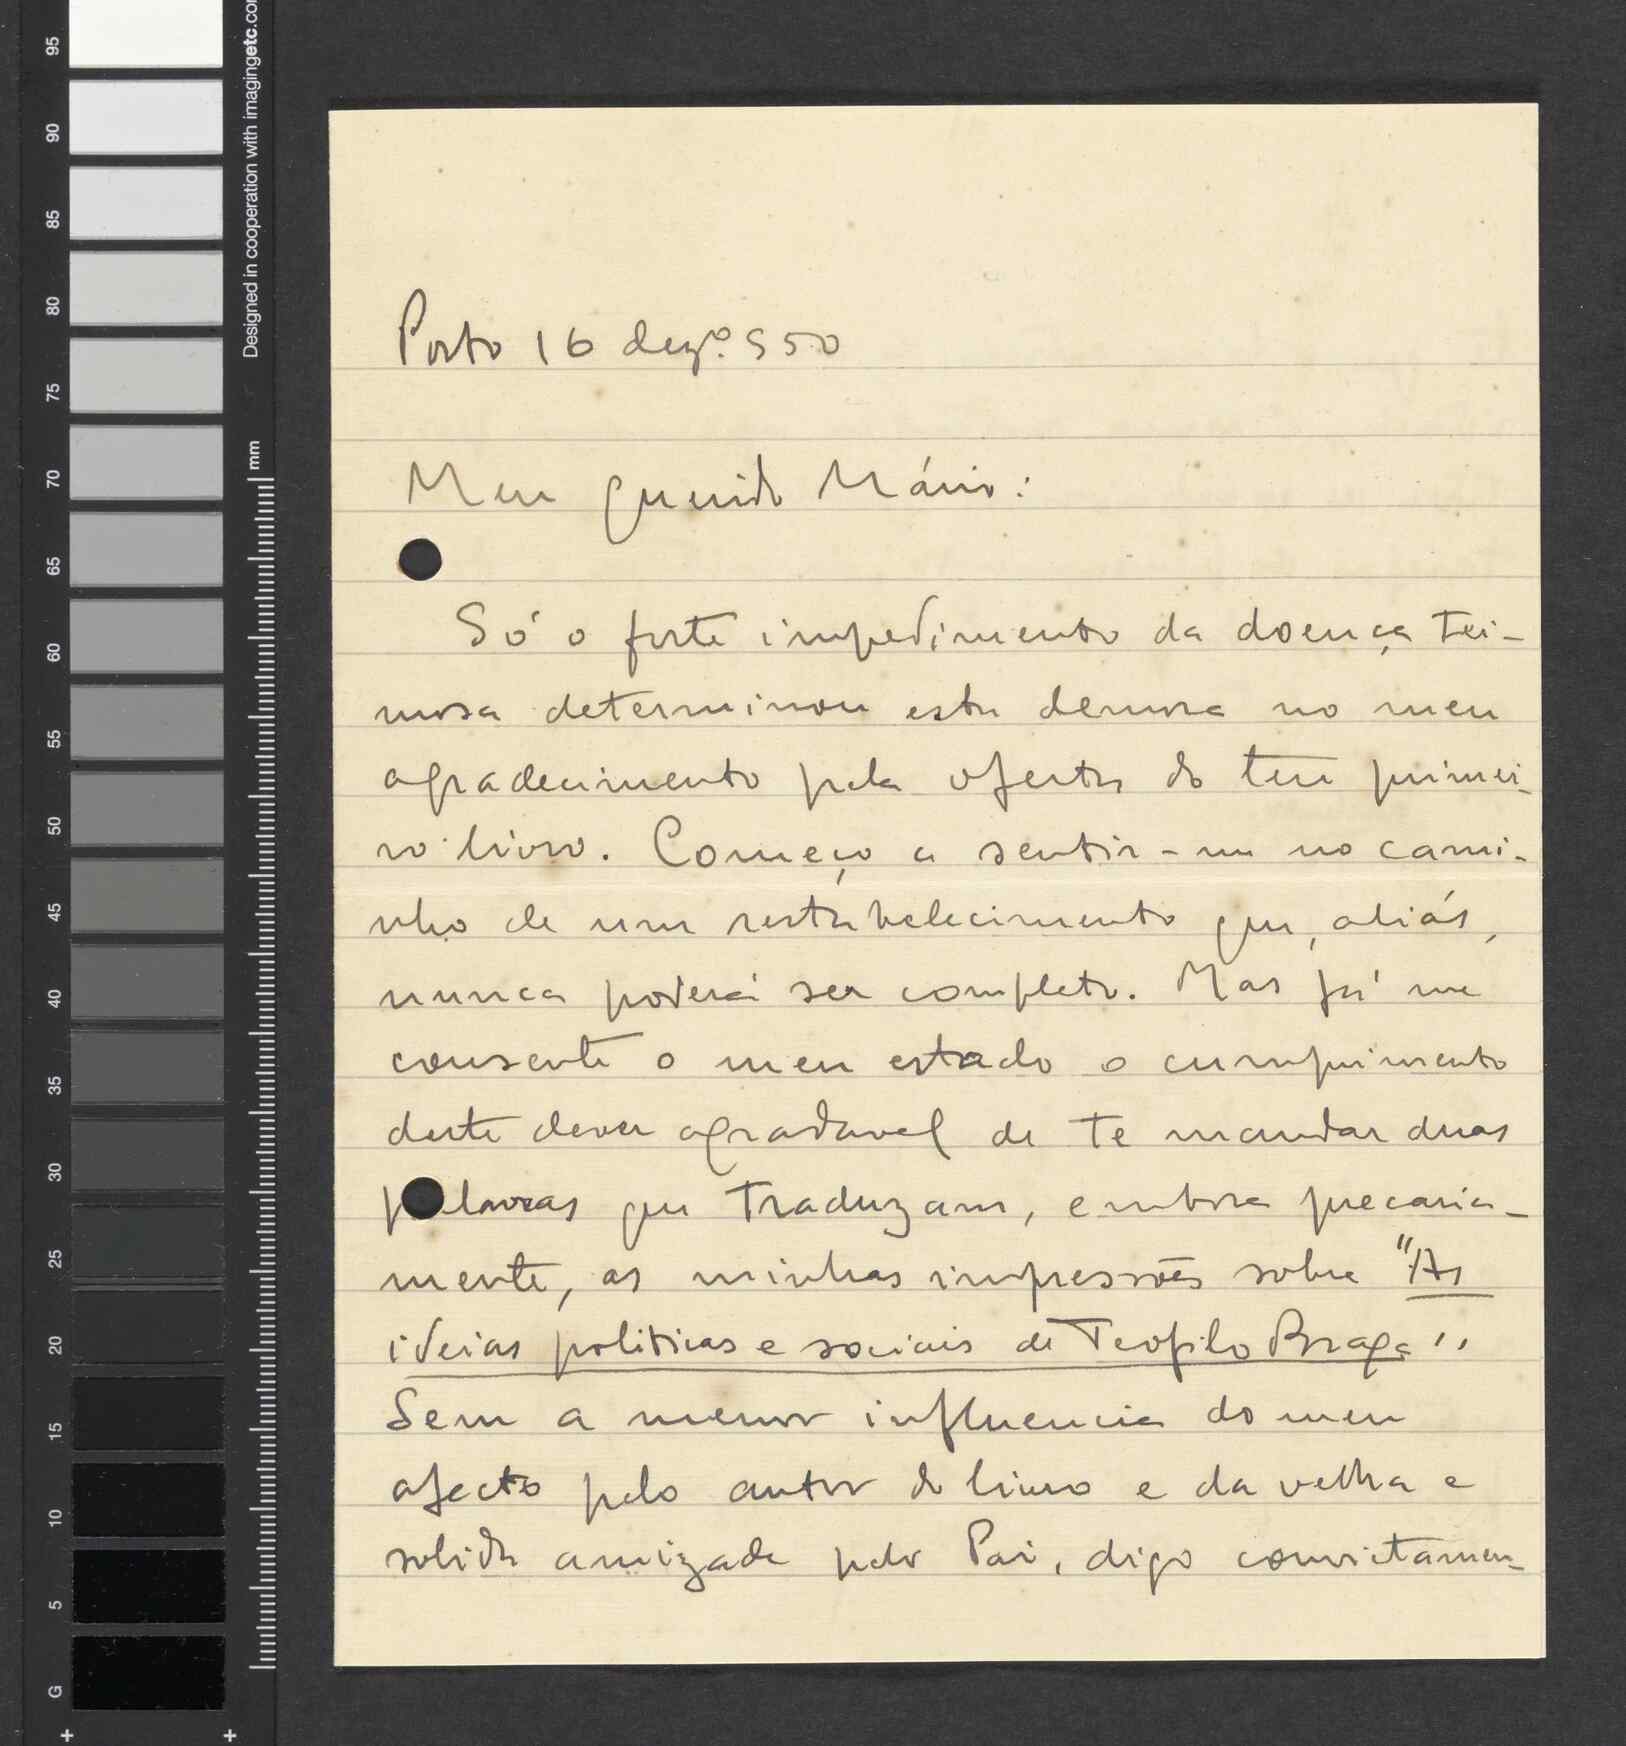 95
90
85
80
75
70
65
60
55
50
45
40
35
30
25
20
15
10
5
G
Designed in cooperation with imagingetc.com
mm
Porto 16 dezº. 950
Meu querido Mário:
Só o forte impedimento da doença tei-
mosa determinou esta demora no meu
agradecimento pela oferta do teu primei-
ro livro. Começo a sentir-me no cami-
nho de um restabelecimento que, aliás,
nunca poderá ser completo. Mas já me
consente o meu estado o cumprimento
deste dever agradavel de te mandar duas
palavras que traduzam, embora precaria-
mente, as minhas impressões sobre "As
ideias politicas e sociais de Teofilo Braga".
Sem a menor influencia do meu
afecto pelo autor do livro e da velha e
solida amizade pelo Pai, digo convictamen-